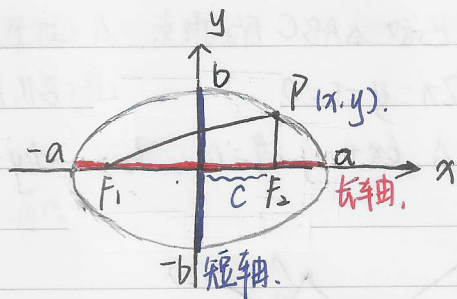 y
b
P(x·y).
-a
a
x
F₁
C
F₂
长轴.
-b
短轴.